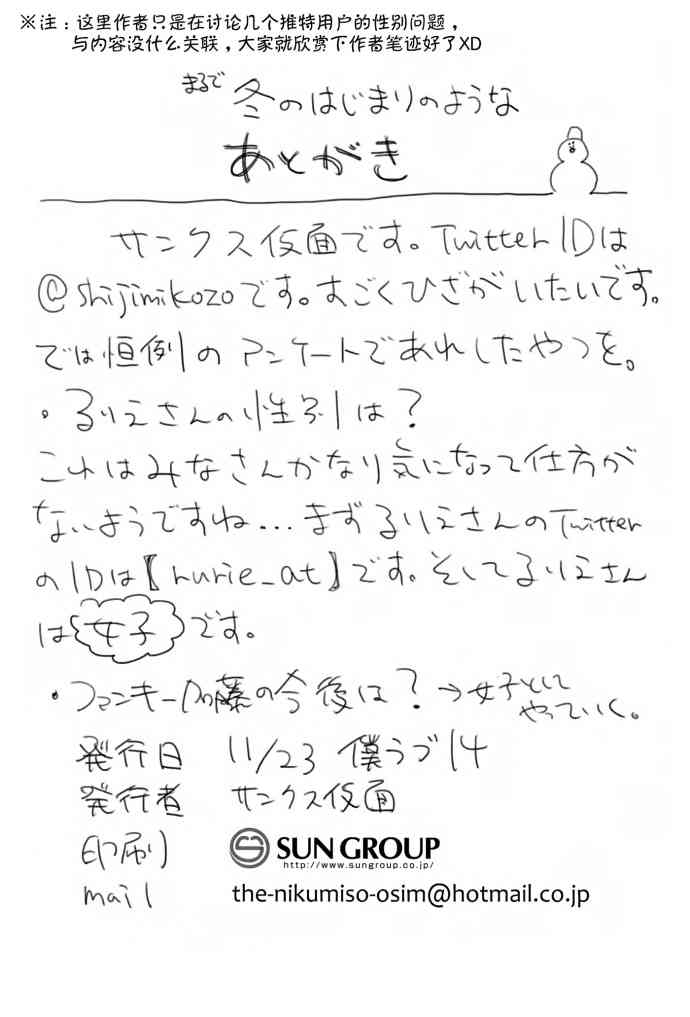 ※注：这里作者只是在讨论几个推特用户的性别问题，
与内容没什么关联，大家就欣赏下作者笔迹好了XD
まるで 冬のはじまりのような
あとがき
サンクス仮面です。Twitter IDは
@shijimikozoです。すごくひざがいたいです。
では恒例のアンケートであれしたやつを。
・るりえさんの性別は？
これはみなさんかなり気になって仕方が
ないようですね...まずるりえさんのTwitter
のIDは【rurie_at】です。そしてるりえさん
は女子です。
・ファンキー加藤の今後は？→女子として
やっていく。
発行日 11/23 僕ラブ14
発行者 サンクス仮面
印刷 SUN GROUP
http://www.sungroup.co.jp/
mail the-nikumiso-osim@hotmail.co.jp